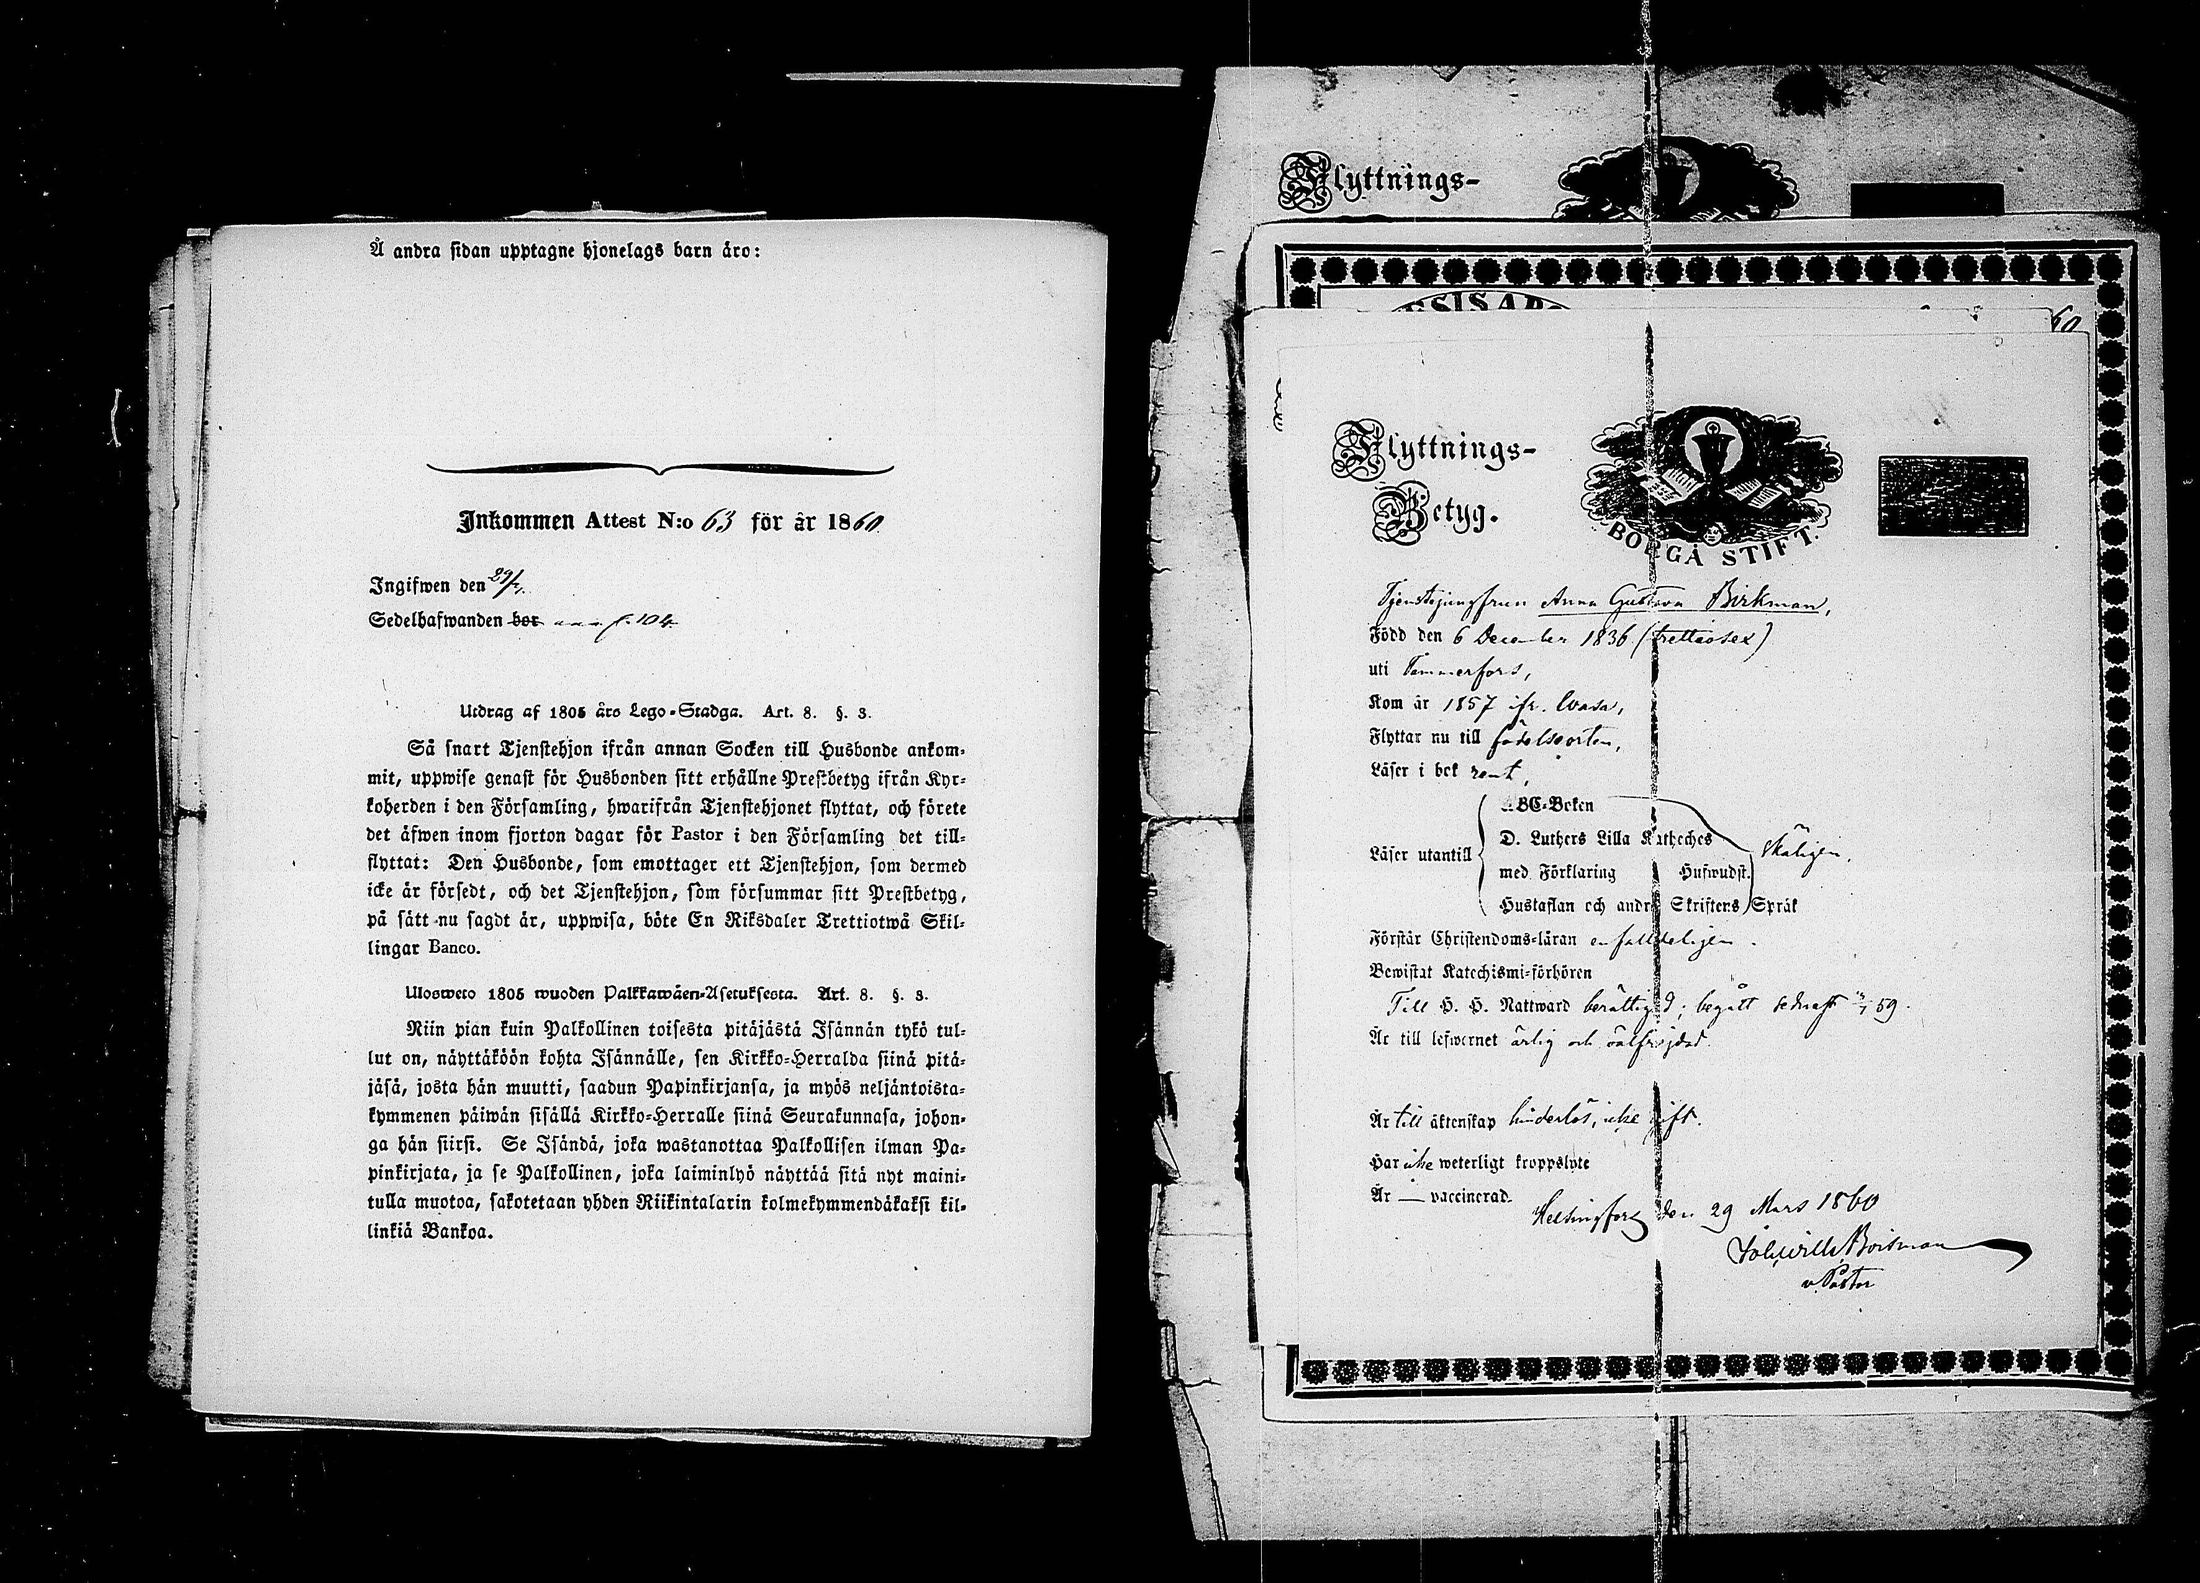 Å andra sidan upptagne hjonelags barn äro:
Inkommen Attest N:o 63 för år 1860
Ingifwen den 29/
Sedelhafwanden bor f. 104
Utdrag af 1805 års Lego-Stadga. Art. 8. §. 3.
Så snart Tjenstehjon ifrån annan Socken till Husbonde ankom-
mit, uppwise genast för Husbonden sitt erhållne Prestbetyg ifrån Kyr-
koherden i den Församling, hwarifrån Tjenstehjonet flyttat, och förete
det äfwen inom fjorton dagar för Pastor i den Församling det till-
flyttat: Den Husbonde, som emottager ett Tjenstehjon, som dermed
icke är försedt, och det Tjenstehjon, som försummar sitt Prestbetyg,
på sätt nu sagdt är, uppwisa, böte En Riksdaler Trettiotwå Skil-
lingar Banco.
Ulosweto 1805 wuoden Palkkawäen-Asetuksesta. Art. 8. §. 3.
Niin pian kuin Palkollinen toisesta pitäjästä Isännän tykö tul-
lut on, näyttäköön kohta Isännälle, sen Kirkko-Herralda siinä pitä-
jäsä, josta hän muutti, saadun Papinkirjansa, ja myös neljäntoista-
kymmenen päiwän sisällä Kirkko-Herralle siinä Seurakunnasa, johon-
ga hän siirsi. Se Isändä, joka wastanottaa Palkollisen ilman Pa-
pinkirjata, ja se Palkollinen, joka laiminlyö näyttää sitä nyt maini-
tulla muotoa, sakotetaan yhden Riikintalarin kolmekymmendäkaksi kil-
linkiä Bankoa.
Flyttnings-
60
Flyttnings-
Betyg.
BORGÅ STIFT.
Tjenstejungfrun Anna Gustava Birkman,
Född den 6 December 1836 (trettiosex)
uti Tammerfors,
Kom år 1857 ifr. Wasa,
Flyttar nu till födelseorten,
Läser i bok rent,
ABC-Boken
D. Luthers Lilla Katheches
Läser utantill skäligen.
med Förklaring Hufwudst.
Hustaflan och andra Skriftens Språk
Förstår Christendoms-läran enfalldeligen.
Bewistat Katechismi-förhören
Till H. H. Nattward berättigad; begått sednast 59.
Är till lefwernet ärlig och välfräjdad
Är till äktenskap hinderlös, icke gift.
Har icke weterligt kroppslyte
Är — vaccinerad.
Helsingfors den 29 Mars 1860
Joh. Wilh. Boisman
v. Pastor